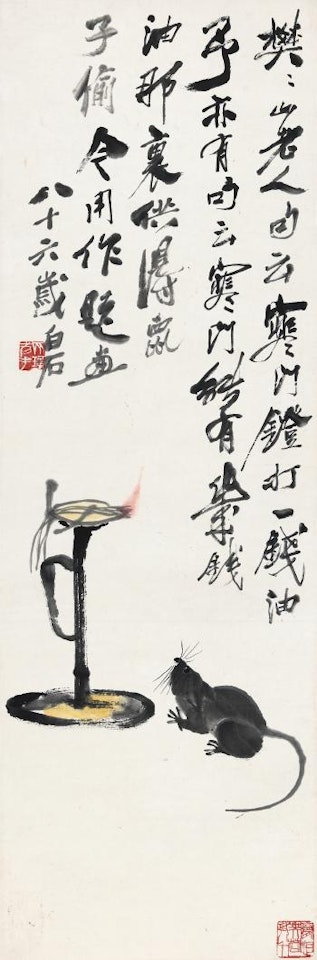 樊〻山老人句云寒門鐙打一錢油
予亦有句云寒門能有幾錢
油那裏供得鼠
子偷今用作題畫
八十六歲白石